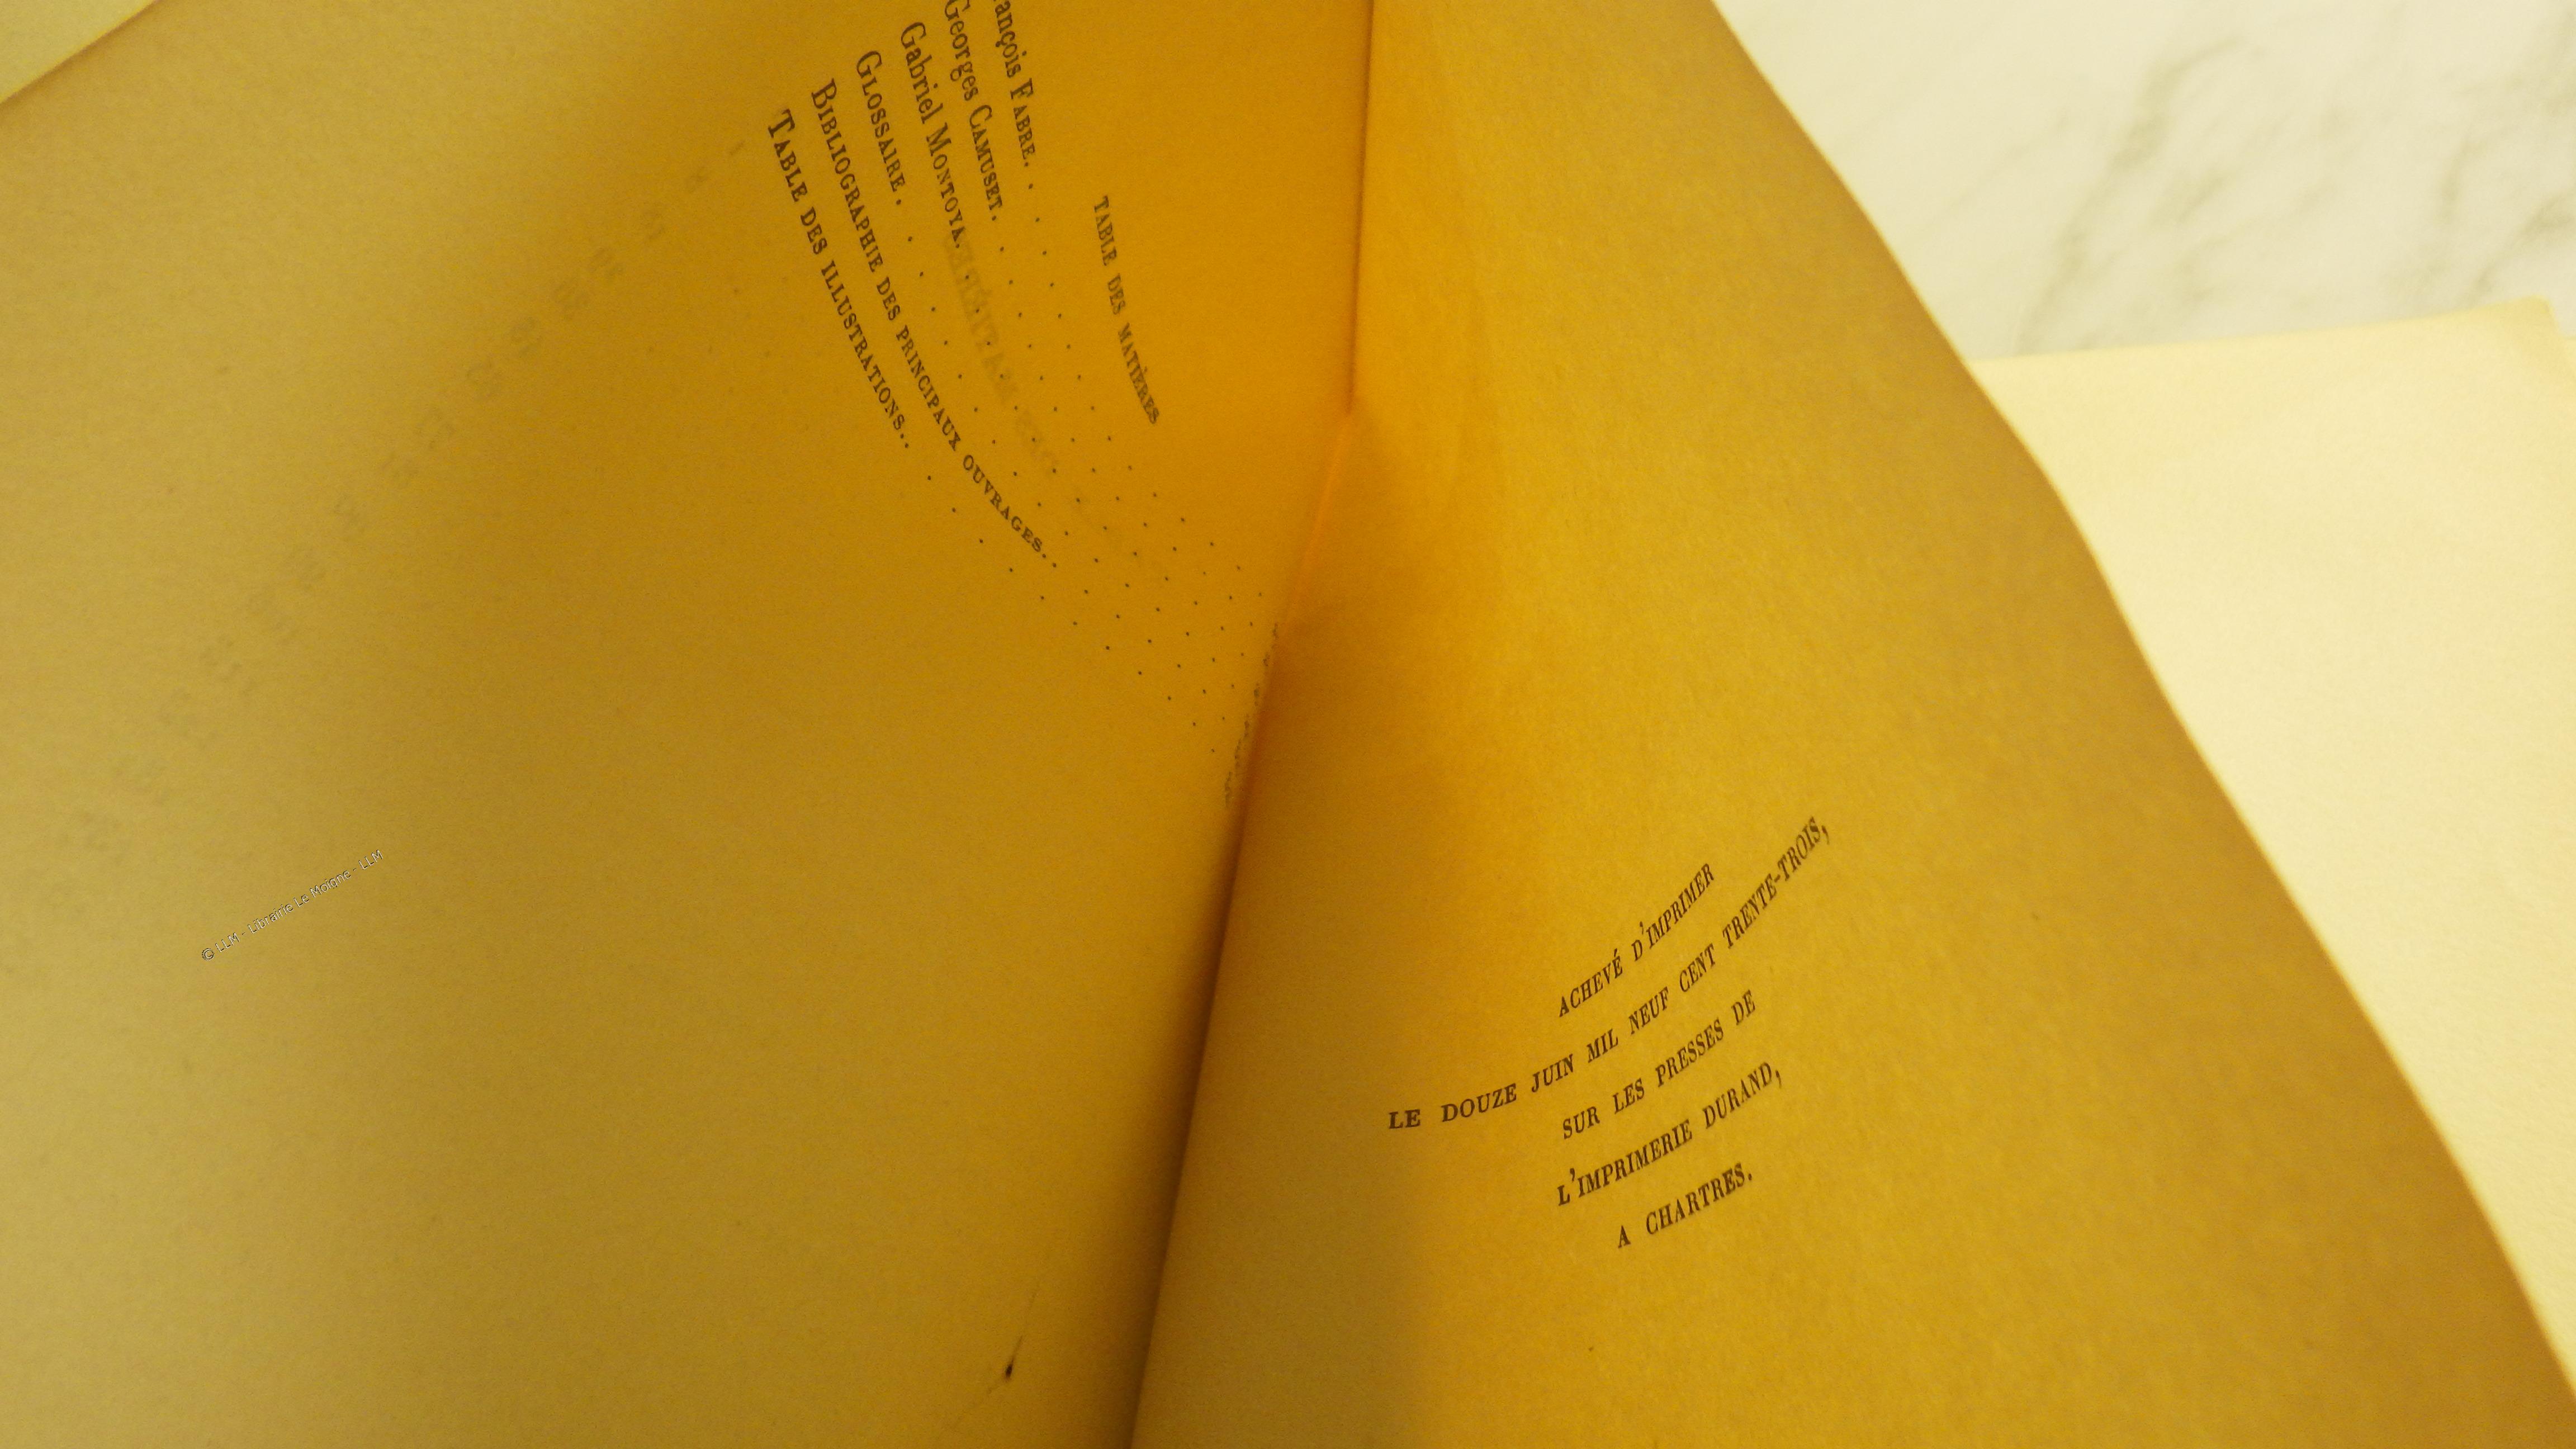 TABLE DES MATIÈRES
ançois FABRE.
Georges CAMUSET.
Gabriel MONTOYA.
GLOSSAIRE.
BIBLIOGRAPHIE DES PRINCIPAUX OUVRAGES.
TABLE DES ILLUSTRATIONS.
© LLM - Librairie Le Moigne - LLM
ACHEVÉ D'IMPRIMER
LE DOUZE JUIN MIL NEUF CENT TRENTE-TROIS,
SUR LES PRESSES DE
L'IMPRIMERIE DURAND,
A CHARTRES.